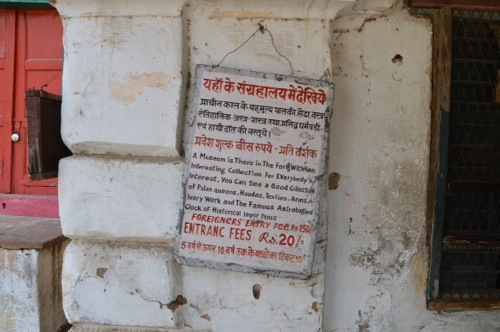 यहाँ के संग्रहालय में देखिये
प्राचीन काल के बहुमूल्य पालकी होदा वस्त्र
ऐतिहासिक अस्त्र-शस्त्र तथा प्रसिद्ध धर्मघड़ी
एवं हाथी दाँत की वस्तुयें।
प्रवेश शुल्क बीस रुपये - प्रति दर्शक
A Museum is There in The Fort, Which am
Interesting Collection For Everybody's
Interest. You Can See a Good Collection
of Palan queens, Haudas, Textius, Arms,
Ivory Work and The Famous Astrological
Clock of Historical Impor tence
FOREIGNERS ENTRY FEE Rs 150/-
ENTRANC FEES Rs. 20/-
5 वर्ष से ऊपर 10 वर्ष तक के बच्चों का टिकट 10/-